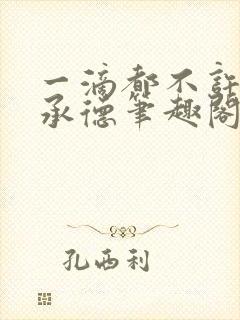 一滴都不許
承德筆趣閣
孔西利